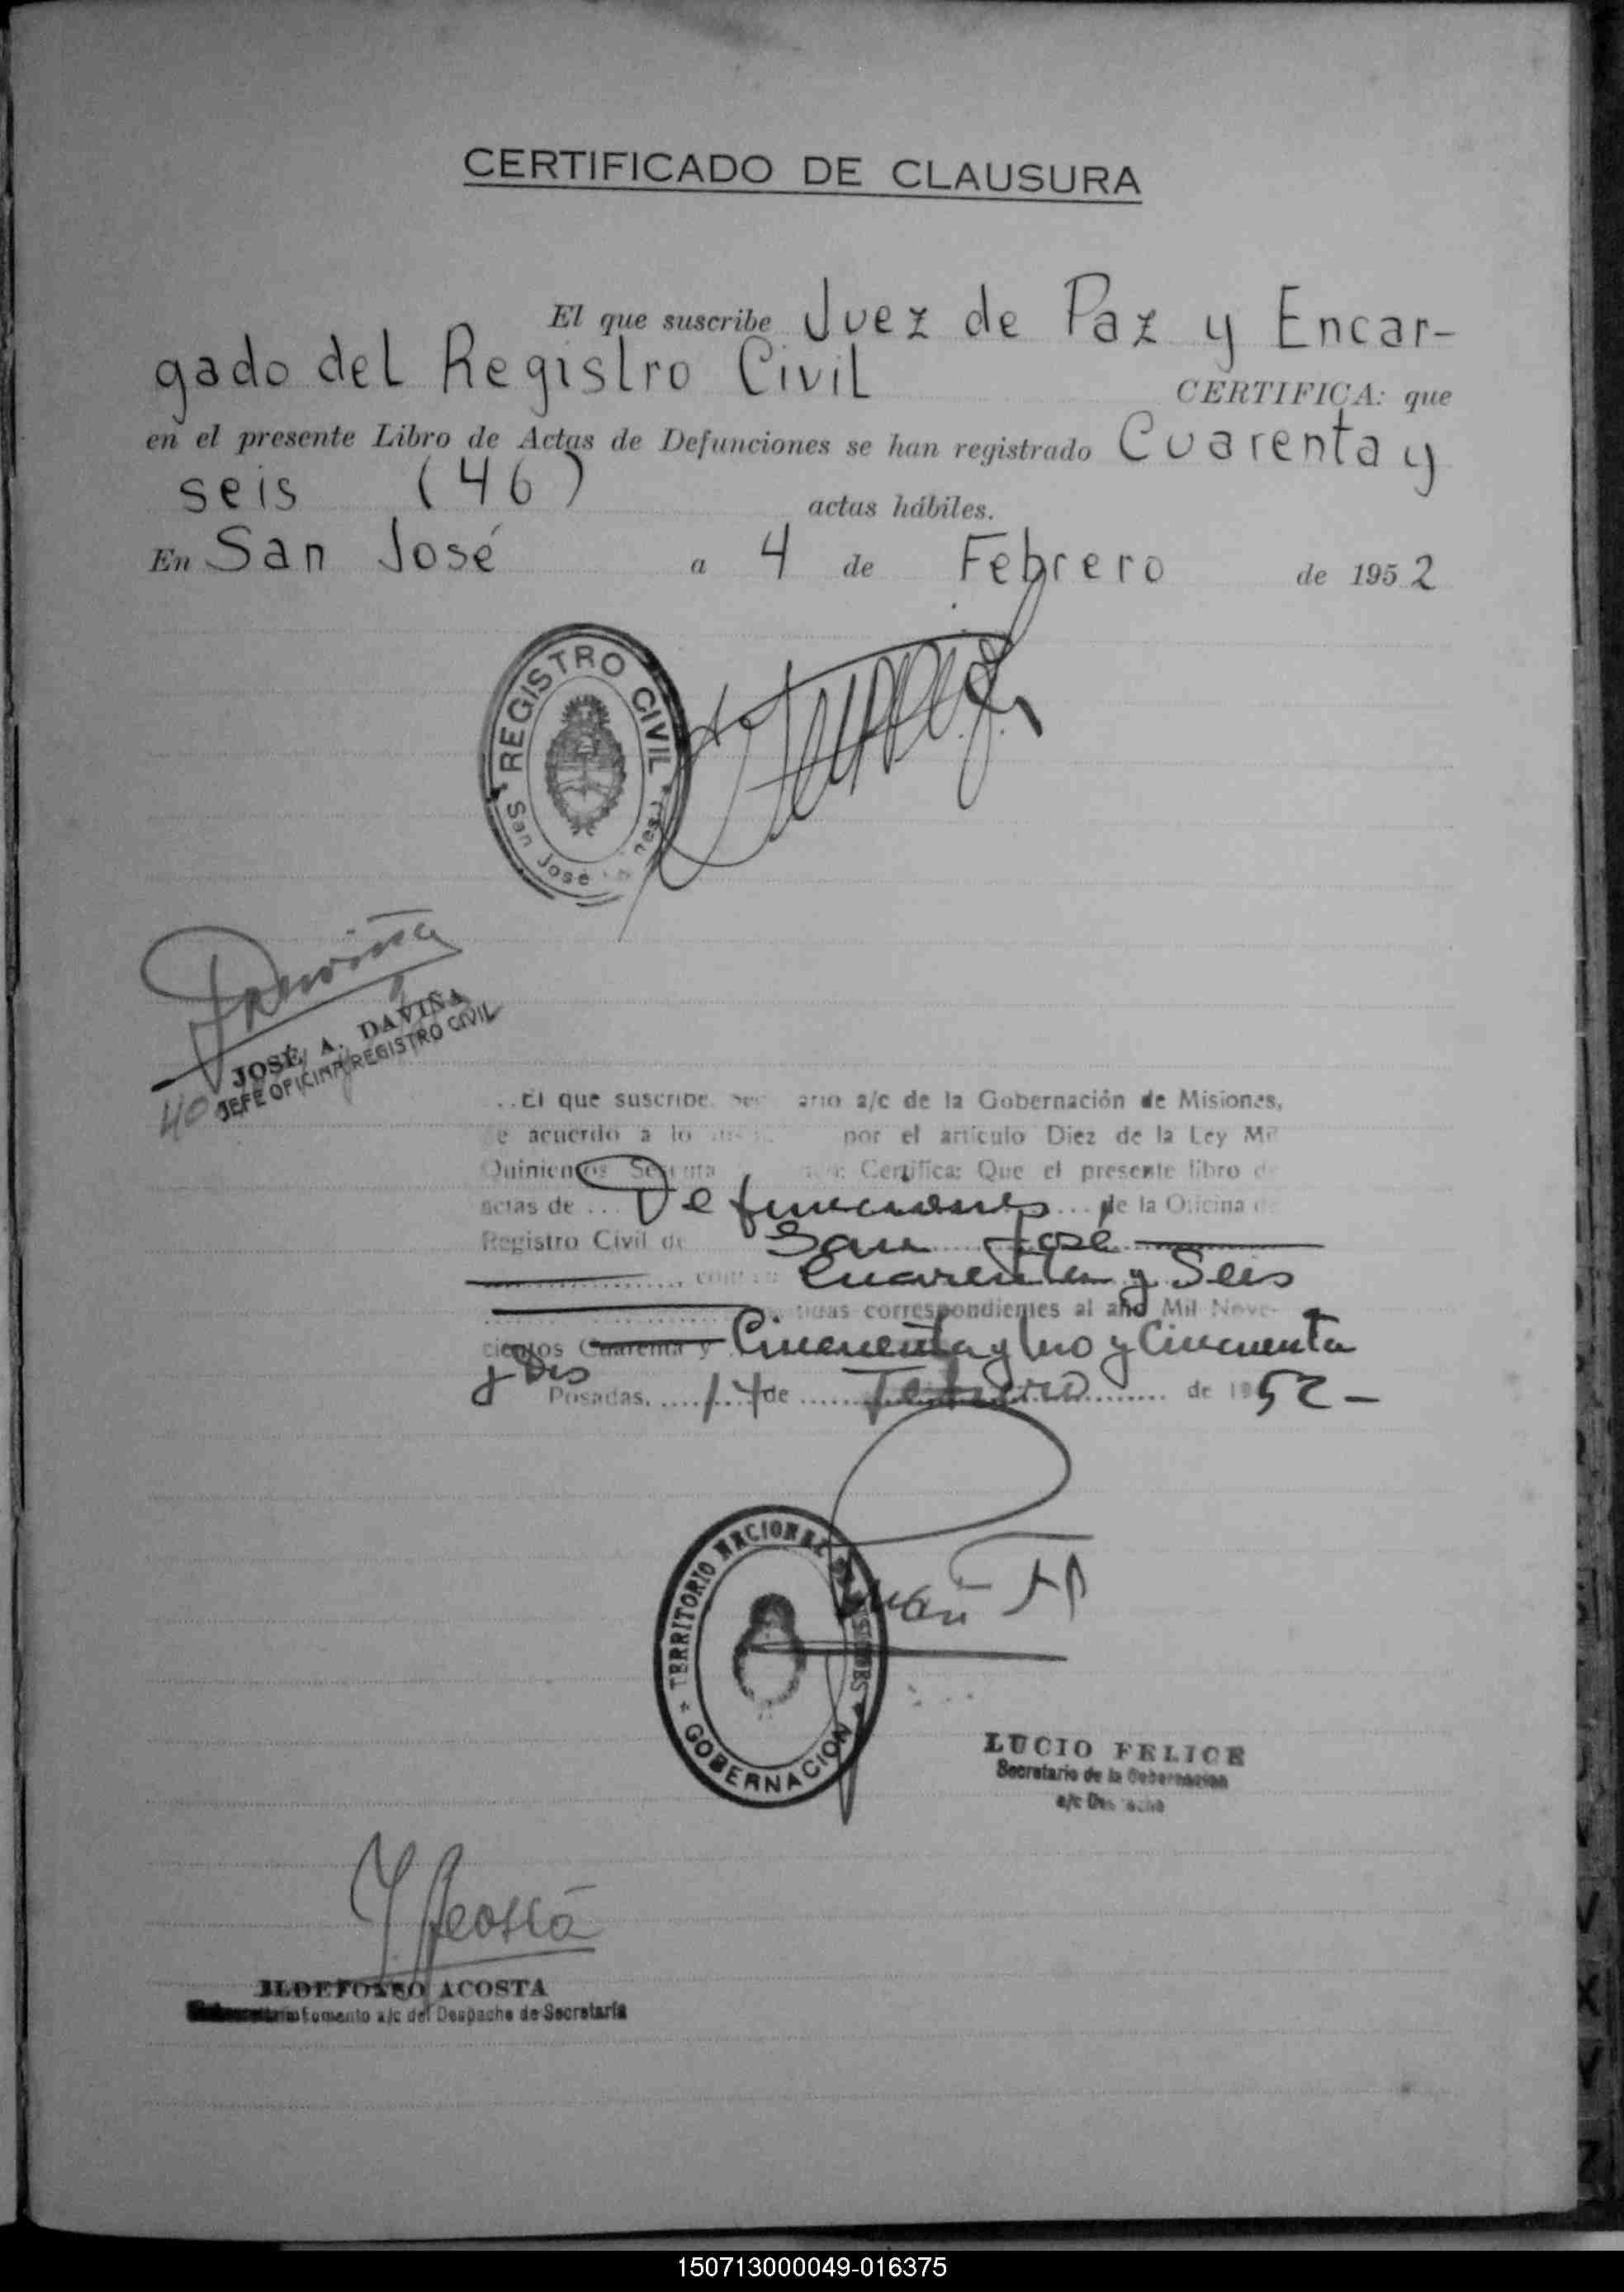 CERTIFICADO DE CLAUSURA
El que suscribe Juez de Paz y Encar-
gado del Registro Civil CERTIFICA: que
en el presente Libro de Actas de Defunciones se han registrado Cuarenta y
seis (46) actas hábiles.
En San José a 4 de Febrero de 1952
REGISTRO CIVIL
San José
Daviña
JOSÉ A. DAVIÑA
JEFE OFICINA REGISTRO CIVIL
40
El que suscribe, a/c de la Gobernación de Misiones,
acuerdo a lo por el artículo Diez de la Ley Mil
Quinientos Certifica: Que el presente libro de
actas de ... Defunciones ... de la Oficina de
Registro Civil de San José
Cuarenta y Seis
correspondientes al año Mil Nove-
cientos Cuarenta y Cincuenta y Uno y Cincuenta
y Dos
Posadas, 14 de Febrero de 1952 -
TERRITORIO NACIONAL DE MISIONES
GOBERNACION
LUCIO FELICE
Secretario de la Gobernacion
a/c Despacho
I Acosta
ILDEFONSO ACOSTA
Fomento a/c del Despacho de Secretaría
150713000049-016375